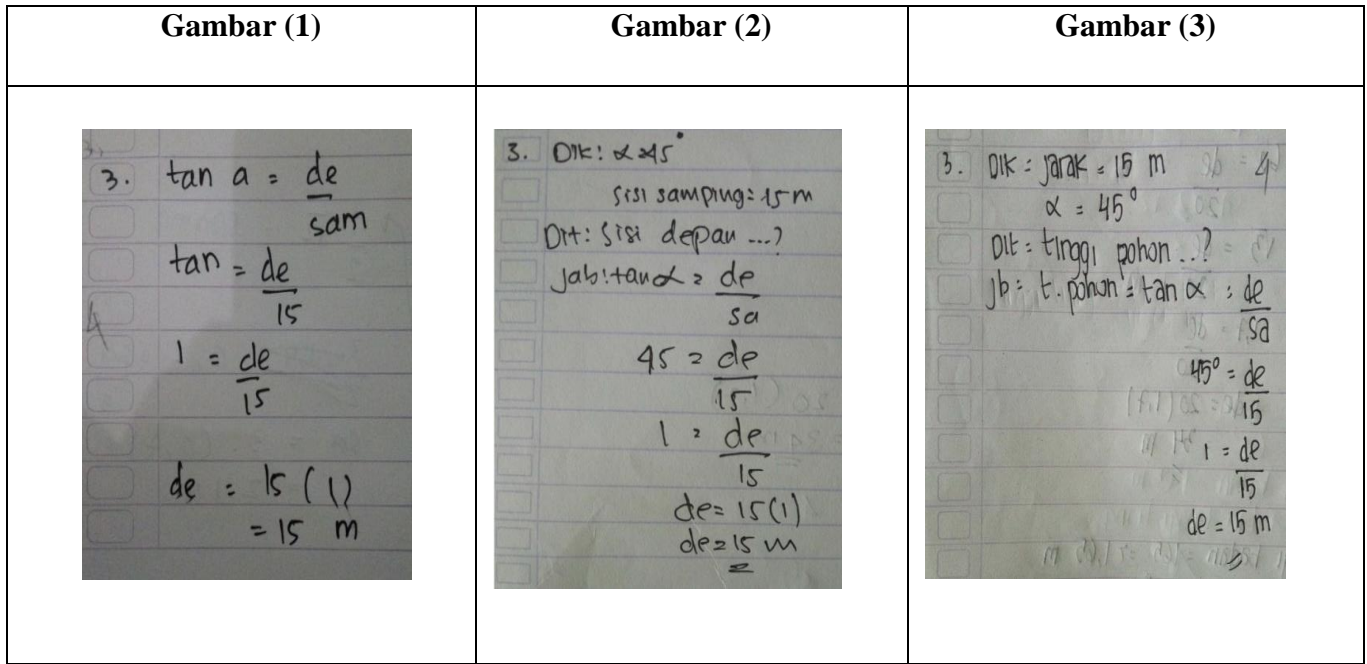 Gambar (1)
Gambar (2)
Gambar (3)
3. tan a = de
sam
tan = de
15
1 = de
15
de = 15 (1)
= 15 m
3. Dik: α = 45°
sisi samping = 15 m
Dit: sisi depan ...?
jab: tan α = de
sa
45 = de
15
1 = de
15
de = 15(1)
de = 15 m
3. Dik = jarak = 15 m
α = 45°
Dit = tinggi pohon ..?
jb = t. pohon = tan α = de
sa
45° = de
15
1 = de
15
de = 15 m